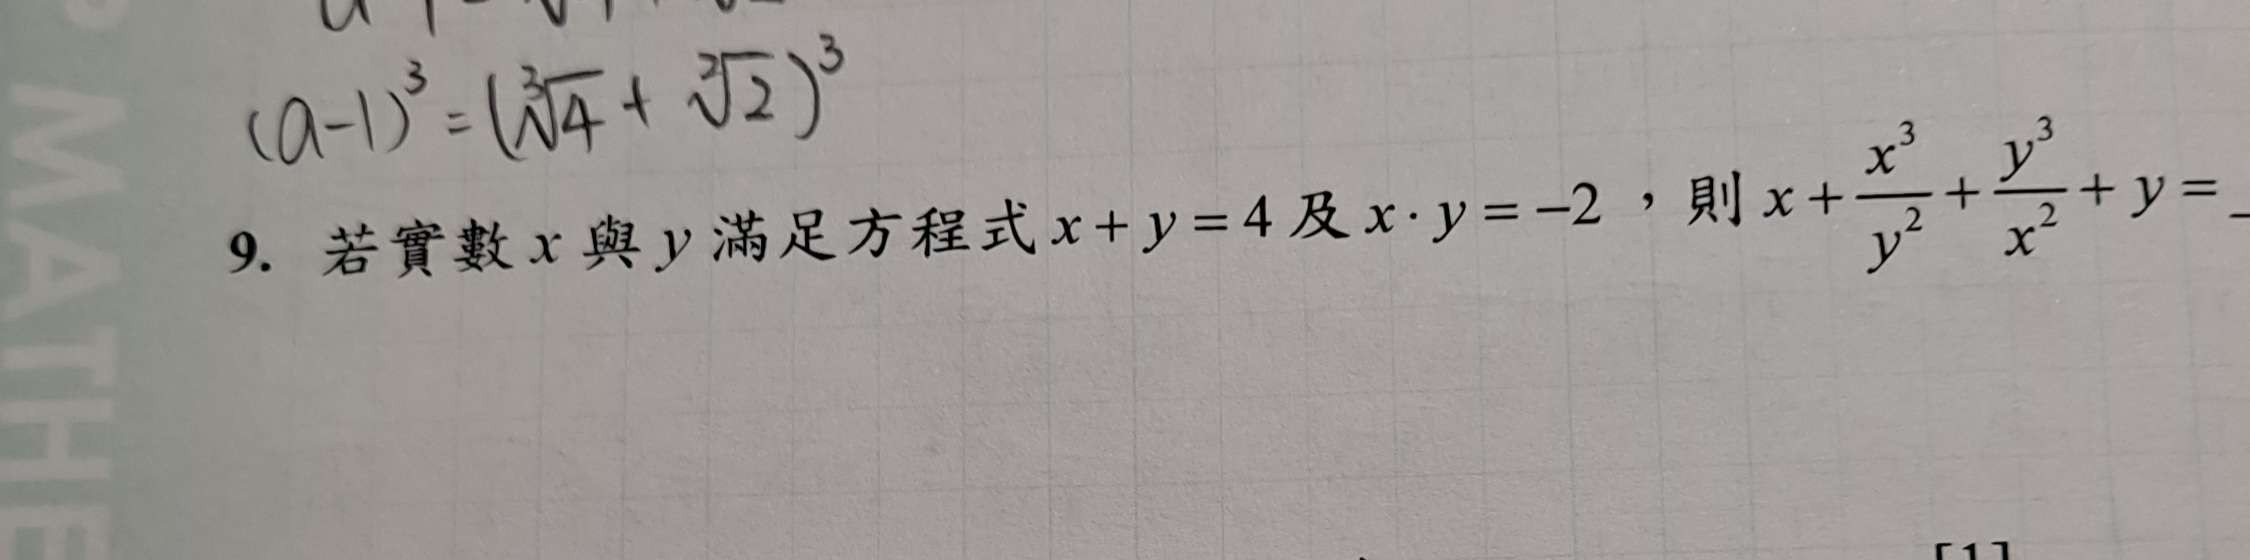 (a-1)³ = (∛4 + ∛2)³
9. 若實數 x 與 y 滿足方程式 x + y = 4 及 x · y = −2 ,則 x + x³/y² + y³/x² + y =
MATHE
[1]